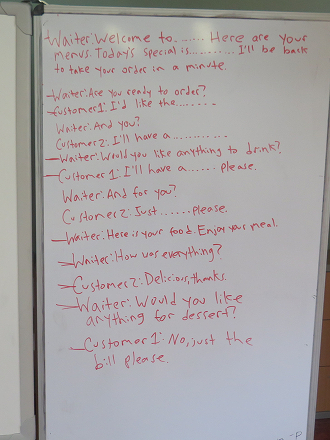 Waiter: Welcome to....... Here are your
menus. Today's special is.......... I'll be back
to take your order in a minute.
Waiter: Are you ready to order?
Customer 1: I'd like the........
Waiter: And you?
Customer 2: I'll have a...........
Waiter: Would you like anything to drink?
Customer 1: I'll have a...... please.
Waiter: And for you?
Customer 2: Just...... please.
Waiter: Here is your food. Enjoy your meal.
Waiter: How was everything?
Customer 2: Delicious, thanks.
Waiter: Would you like
anything for dessert?
Customer 1: No, just the
bill please.